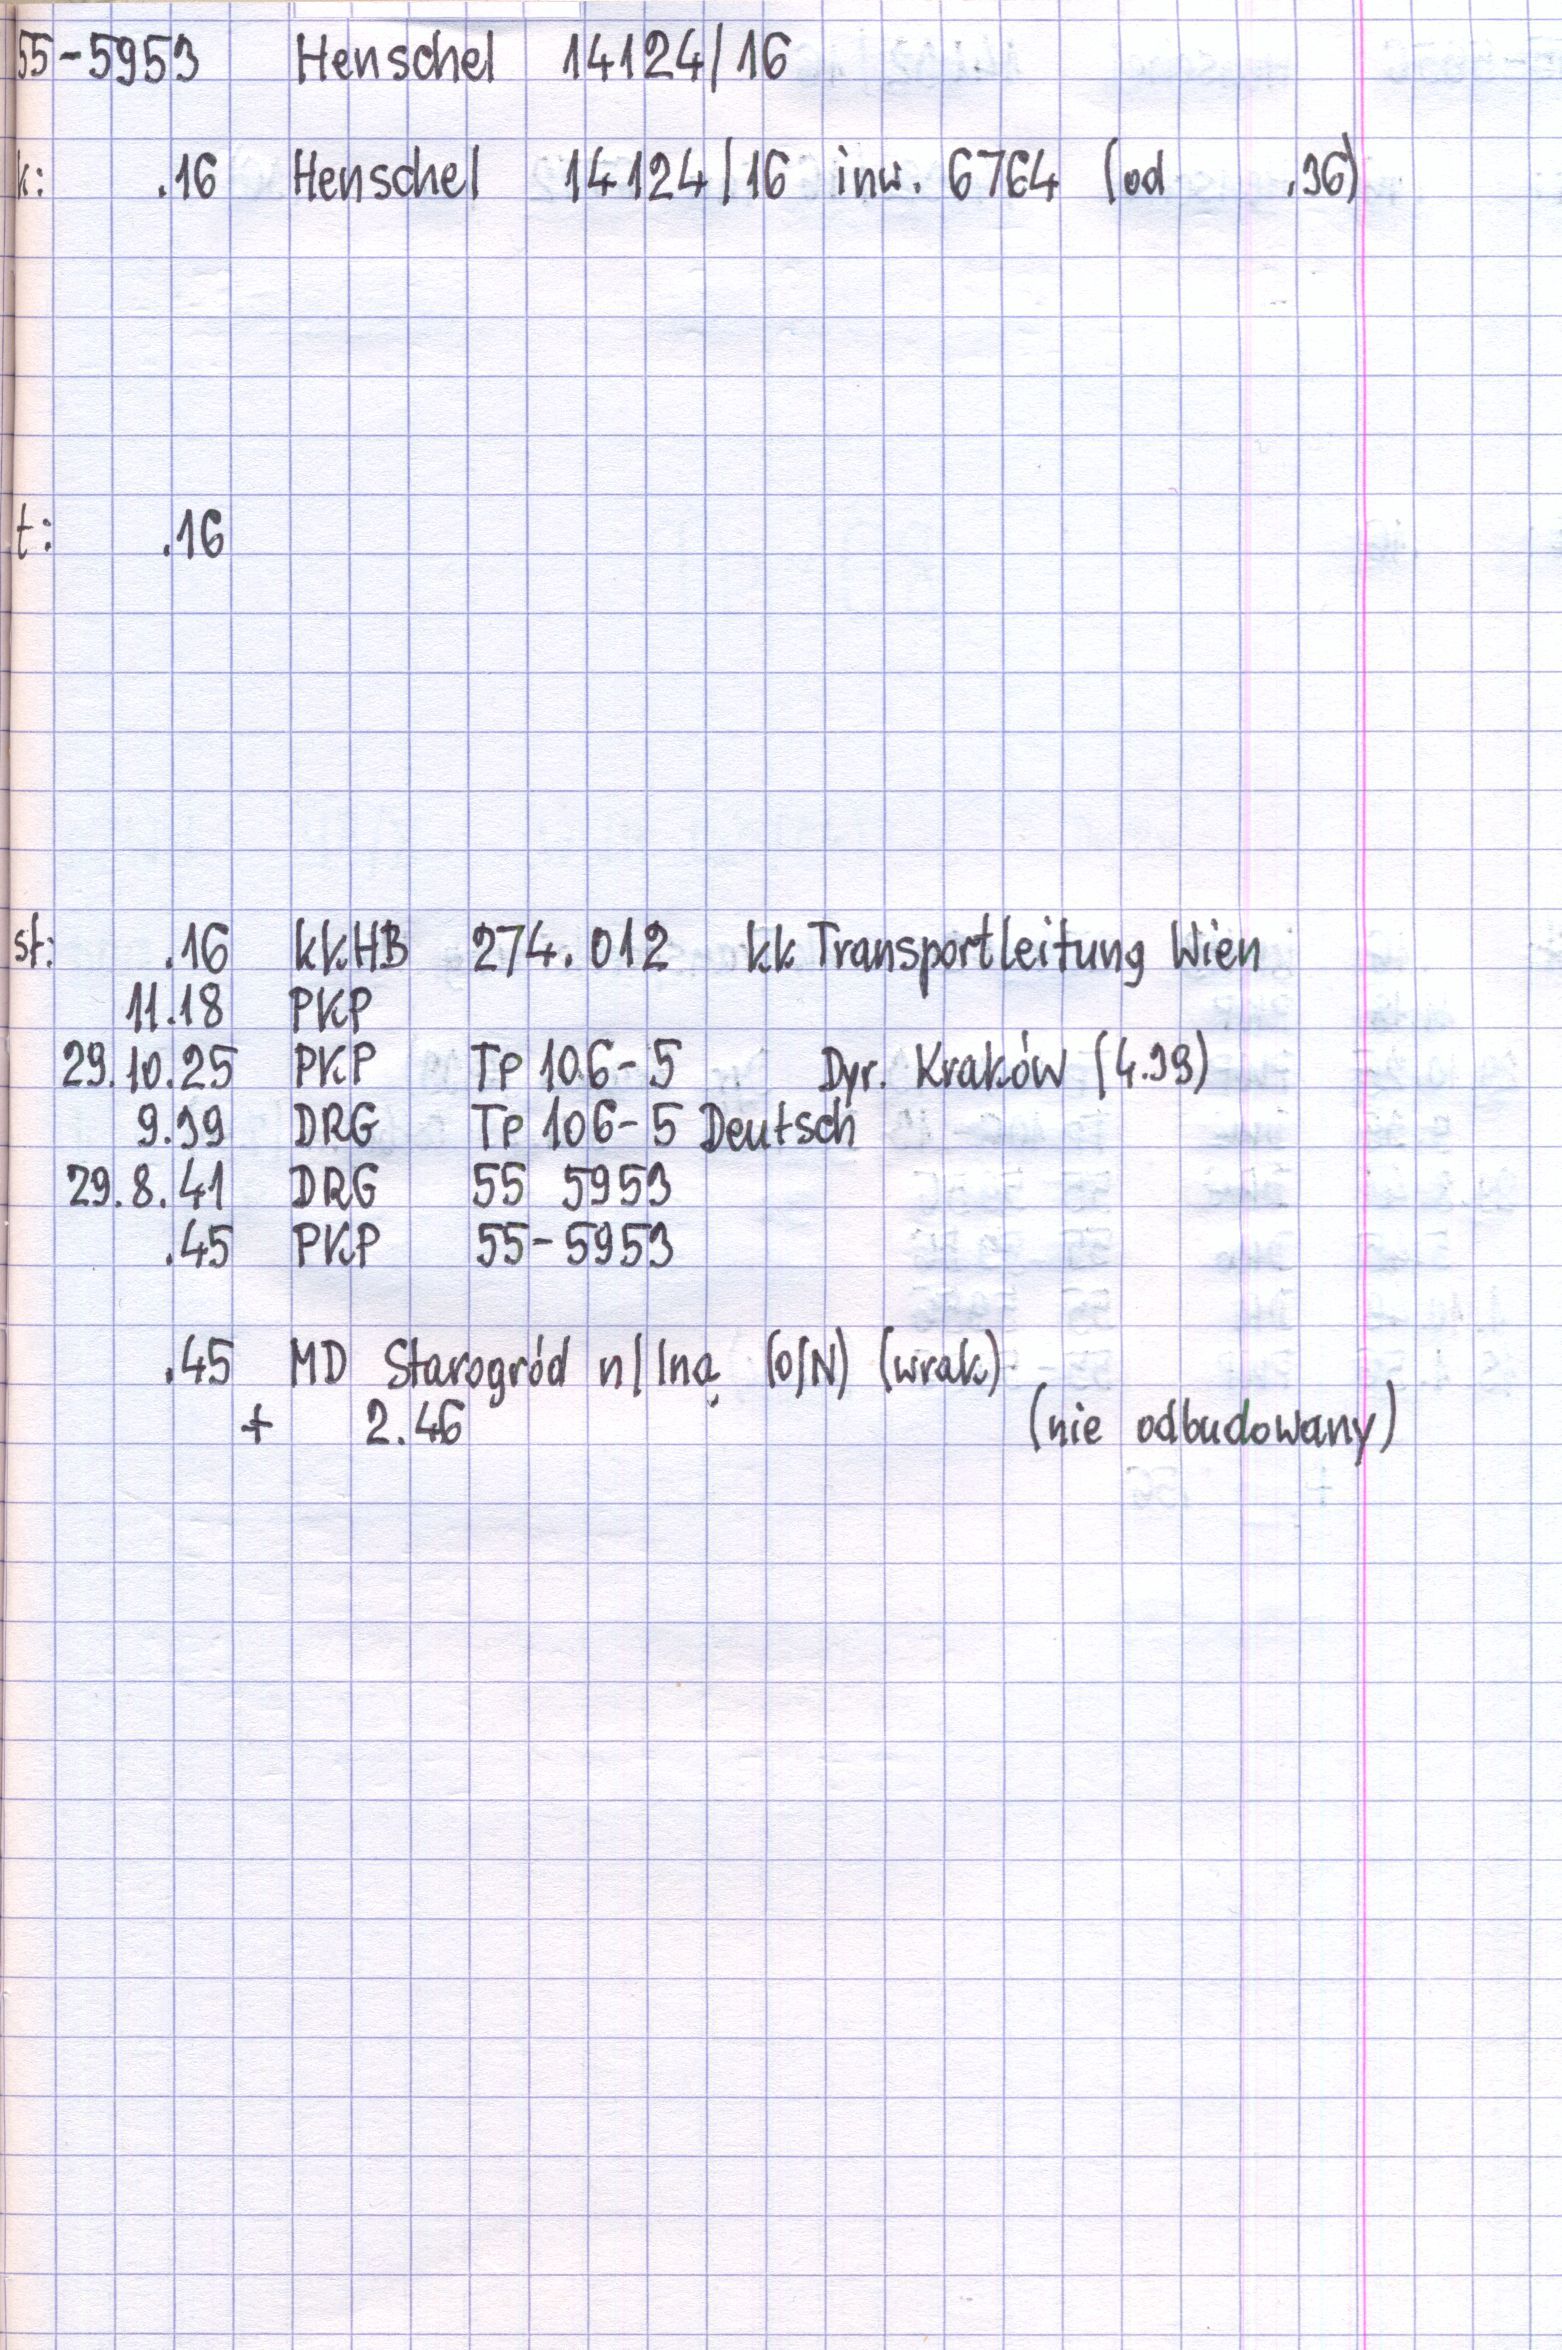 55-5953 Henschel 14124/16
k: .16 Henschel 14124/16 inw. 6764 (od .36)
t: .16
st: .16 kkHB 274.012 kk Transportleitung Wien
11.18 PKP
29.10.25 PKP Tp 106-5 Dyr. Kraków (4.39)
9.39 DRG Tp 106-5 Deutsch
29.8.41 DRG 55 5953
.45 PKP 55-5953
.45 MD Starogród n/Iną (O/N) (wrak)
+ 2.46 (nie odbudowany)